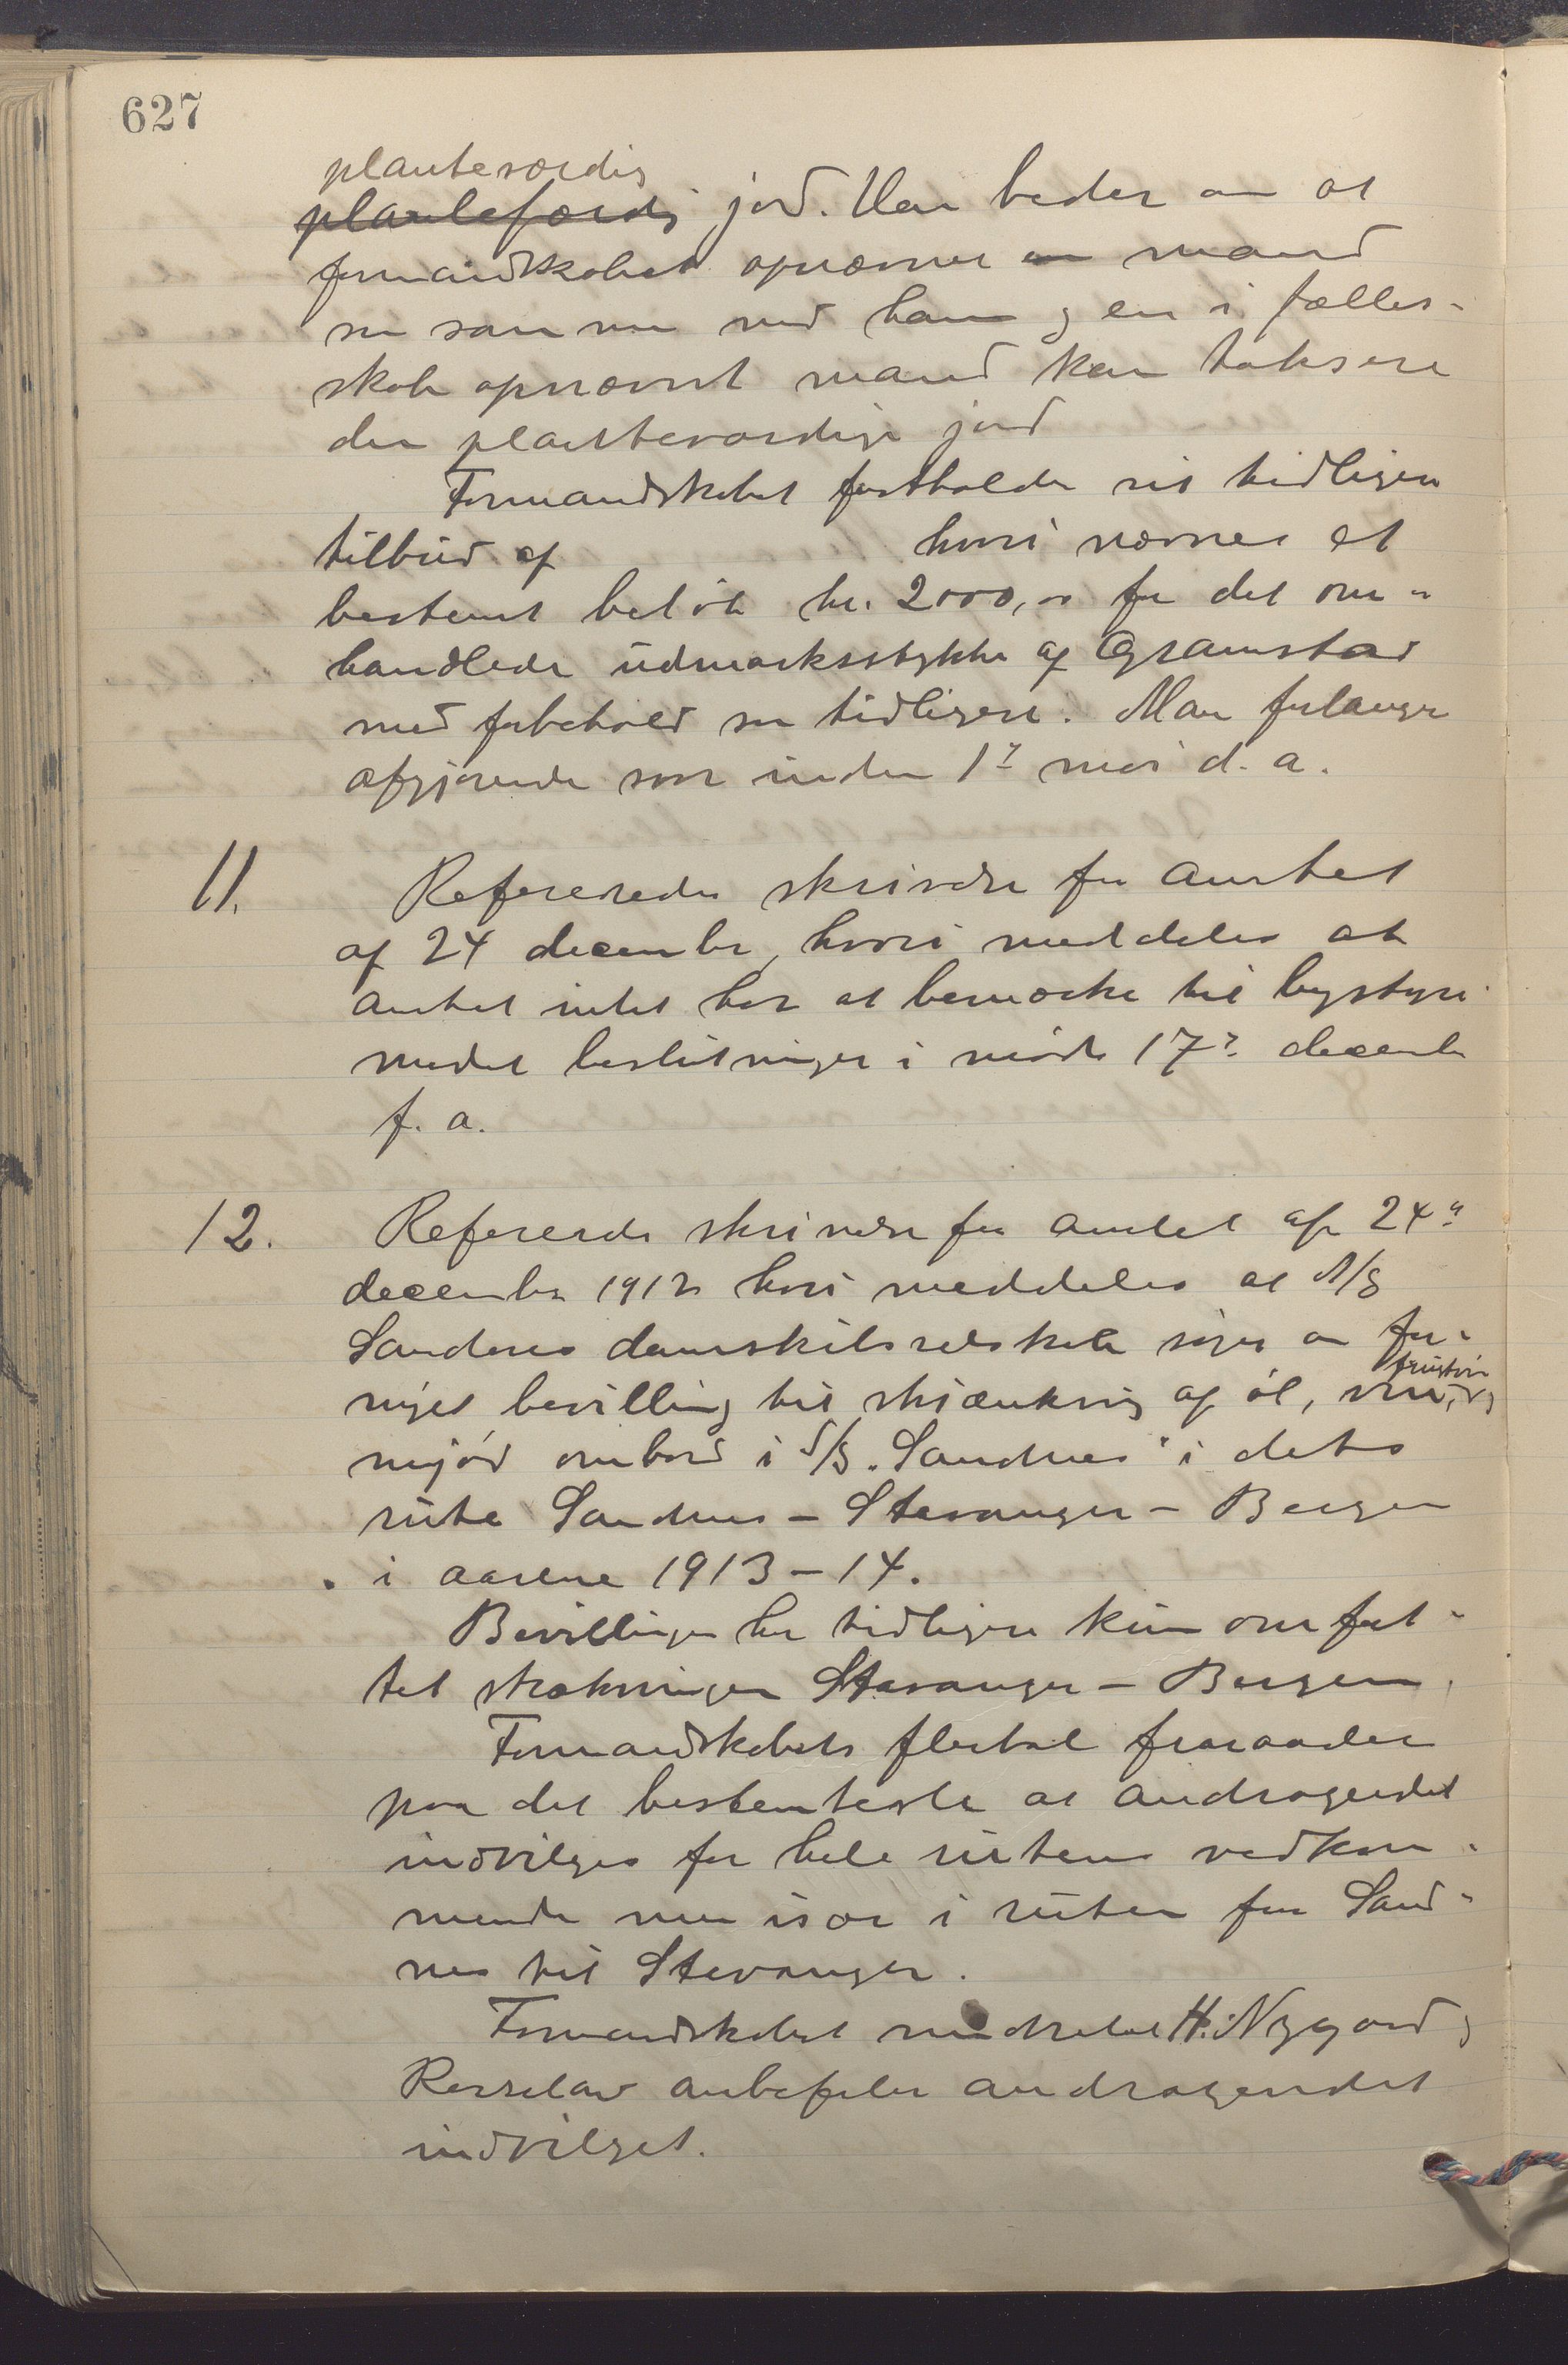 627
planteværdig
plantefærdig jord. Han beder om at
formandskabet opnævner en mand
som sammen med ham og en i fælles-
skab opnævnt mand kan taksere
den planteværdige jord
Formandskabet fastholder sit tidligere
tilbud af hvori nævnes et
bestemt beløb kr. 2000,00 for det om-
handlede udmarksstykke af Gramstad
med forbehold som tidligere. Man forlanger
afgjørende svar inden 1ste mai d. a.
11. Refereredes skrivelse fra amtet
af 24 december, hvori meddeles at
amtet intet har at bemærke til bystyre
mødet beslutninger i møde 17de december
f. a.
12. Refereredes skrivelse fra amtet af 24de
december 1912 hvori meddeles at A/S
Sandnes dampskibsselskab søger om for-
nyet bevilling til skjænkning af øl, vin, frugtvin og
mjød ombord i D/S "Sandnes" i dets
rute Sandnes – Stavanger – Bergen
i aarene 1913–14.
Bevillingen har tidligere kun omfat-
tet strækningen Stavanger – Bergen.
Formandskabets flertal fraraader
paa det bestemteste at andragendet
indvilges for hele rutens vedkom-
mende men især i ruten fra Sand-
nes til Stavanger.
Formandskabet mindretal H. Nygaard og
anbefaler andragendet
indvilget.